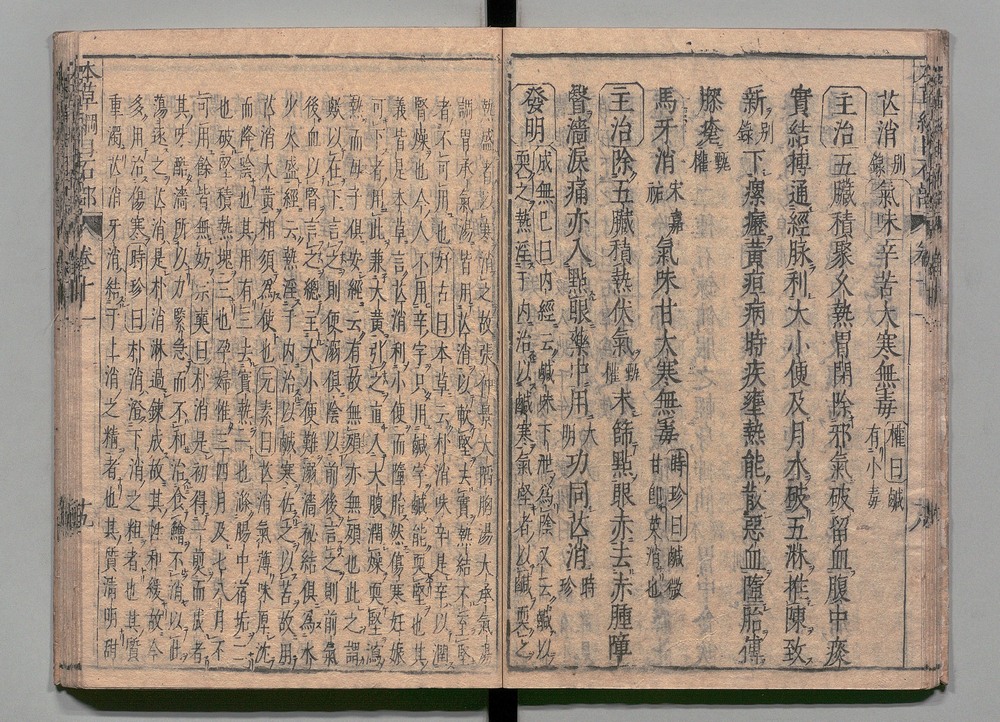 芒消別錄氣味辛苦大寒無毒權曰鹹有小毒
主治五臟積聚久熱胃閉除邪氣破留血腹中痰
實結搏通經脉利大小便及月水破五淋推陳致
新別錄下瘰癧黃疸病時疾壅熱能散惡血墮胎傅
漆瘡甄權
馬牙消宋嘉祐氣味甘大寒無毒時珍曰鹹微甘即英消也
主治除五臟積熱伏氣甄權末篩點眼赤去赤腫障
翳澀淚痛亦入點眼藥中用大明功同芒消時珍
發明成無己曰內經云鹹味下泄爲陰又云鹹以
耎之熱淫于內治以鹹寒氣堅者以鹹耎之
熱盛者以寒消之故張仲景大陷胸湯大承氣湯
調胃承氣湯皆用芒消以軟堅去實熱結不至堅
者不可用也好古曰本草云朴消味辛是辛以潤
腎燥也今人不用辛字只用鹹字鹹能耎堅也其
義皆是本草言芒消利小便而墮胎然傷寒妊娠
可下者用此兼大黃引之直入大腹潤燥耎堅瀉
熱而母子俱安經云有故無殞亦無殞也此之謂
歟以在下言之則便溺俱陰以前後言之則前氣
後血以腎言之總主大小便難溺澀秘結俱爲水
少火盛經云熱淫于內治以鹹寒佐之以苦故用
芒消大黃相須爲使也元素曰芒消氣薄味厚沈
而降陰也其用有三去實熱一也滌腸中宿垢二
也破堅積熱塊三也孕婦惟三四月及七八月不
可用餘皆無妨宗奭曰朴消是初得一煎而成者
其味酷澁所以力緊急而不和治食鱠不消以此
蕩逐之芒消是朴消淋過鍊成故其性和緩故今
多用治傷寒時珍曰朴消澄下消之粗者也其質
重濁芒消牙消結于上消之精者也其質清明甜
本草綱目石部
卷十一